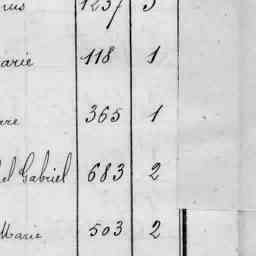 1237 3
arie 118 1
re 365 1
el Gabriel 683 2
Marie 503 2